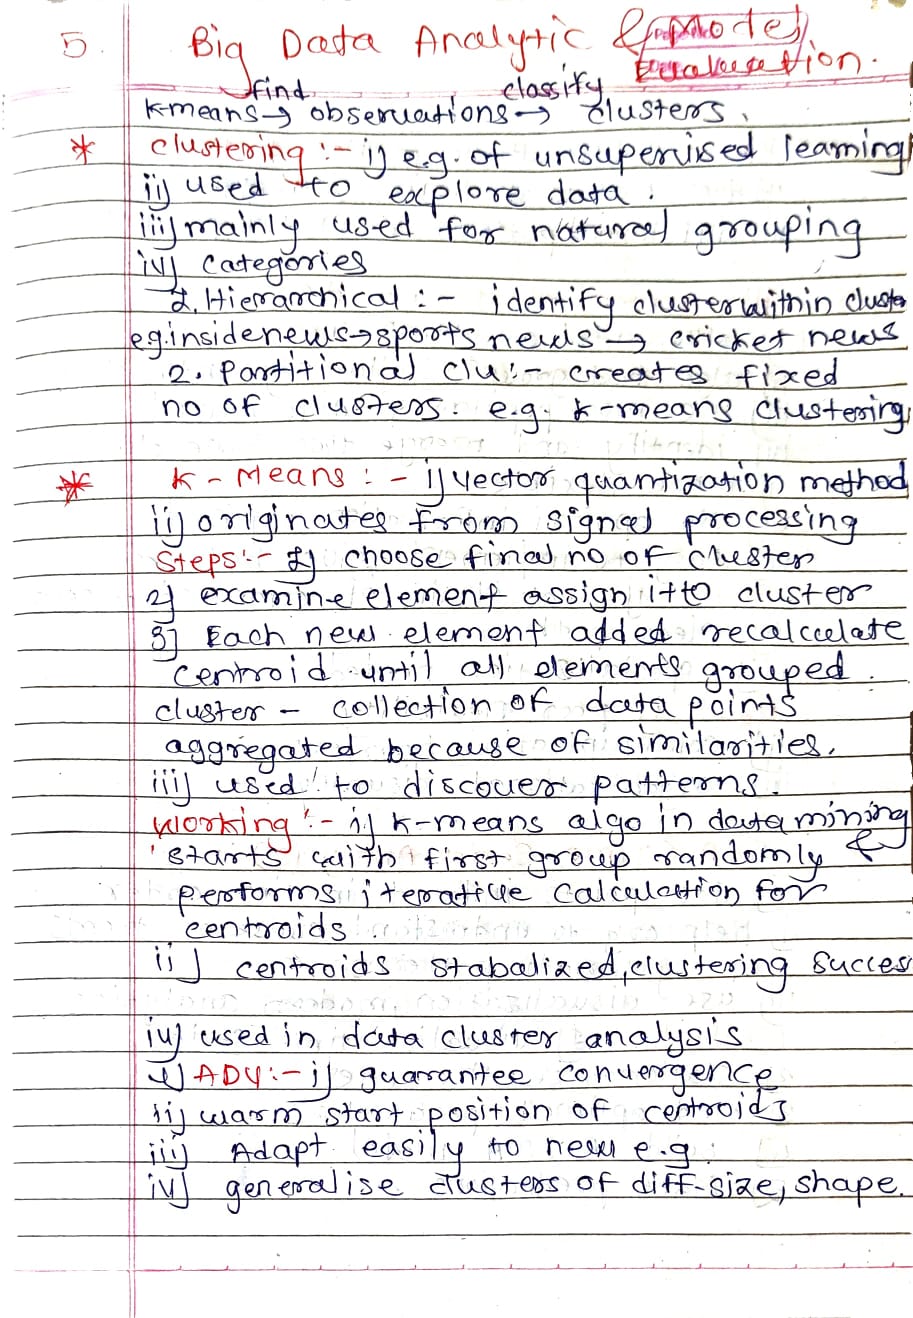 5. Big Data Analytic & Model
Evaluation.
find classify
k-means → observations → clusters.
* clustering :- i) e.g. of unsupervised learning
ii) used to explore data.
iii) mainly used for natural grouping
iv) categories
1. Hierarchical :- identify cluster within cluste
eg. inside news → sports news → cricket news
2. Partitional clu :- creates fixed
no of clusters. e.g. k-means clustering
* K-Means :- i) vector quantization method
ii) originates from signal processing
Steps :- 1) choose final no of cluster
2) examine element assign it to cluster
3) Each new element added recalculate
centroid until all elements grouped.
cluster - collection of data points
aggregated because of similarities.
iii) used to discover patterns.
Working :- i) k-means algo in data mining
starts with first group randomly &
performs iterative calculation for
centroids.
ii) centroids stabalized, clustering succes
iv) used in data cluster analysis
ADV :- i) guarantee convergence
ii) warm start position of centroids
iii) Adapt easily to new e.g.
iv) generalise clusters of diff-size, shape.